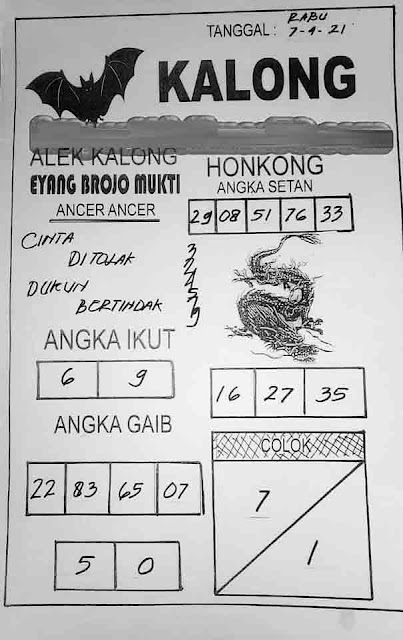 TANGGAL : RABU
7-4-21
KALONG
ALEK KALONG
EYANG BROJO MUKTI
ANCER ANCER
CINTA
DITOLAK
DUKUN
BERTINDAK
HONKONG
ANGKA SETAN
29 08 51 76 33
ANGKA IKUT
6 9
16 27 35
ANGKA GAIB
22 83 65 07
5 0
COLOK
7
1